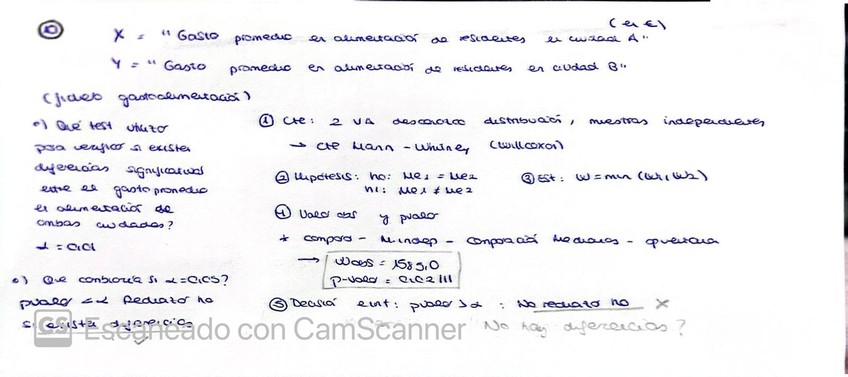 10
(en €)
X = "Gasto promedio en alimentación de residentes en ciudad A"
Y = "Gasto promedio en alimentación de residentes en ciudad B"
(fichero gastoalimentación)
•) Qué test utilizo
para verificar si existen
diferencias significativas
entre el gasto promedio
en alimentación de
ambas ciudades?
α = 0,01
•) Que cambiaría si α=0,05?
pvalor <α Rechazo ho
si existen diferencias
① Cte: 2 VA desconozco distribución, muestras independientes
→ cte Mann - Whitney (Wilcoxon)
② Hipótesis: ho: Me1 = Me2
h1: Me1 ≠ Me2
③ Est: W=min (W1, W2)
④ Valor obs y pvalor
* compara - M.indep - Comparación Medianas -
→ Wobs = 1585,0
p-valor = 0,02111
⑤ Decisión e int: pvalor >α : No rechazo ho ✗
No hay diferencias?
CS Escaneado con CamScanner